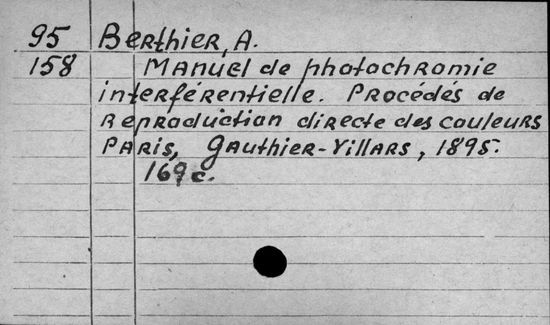 95 Berthier, A.
158 Manuel de photochromie
interférentielle. Procédés de
reproduction directe des couleurs
Paris, Gauthier-Villars, 1895.
169 c.